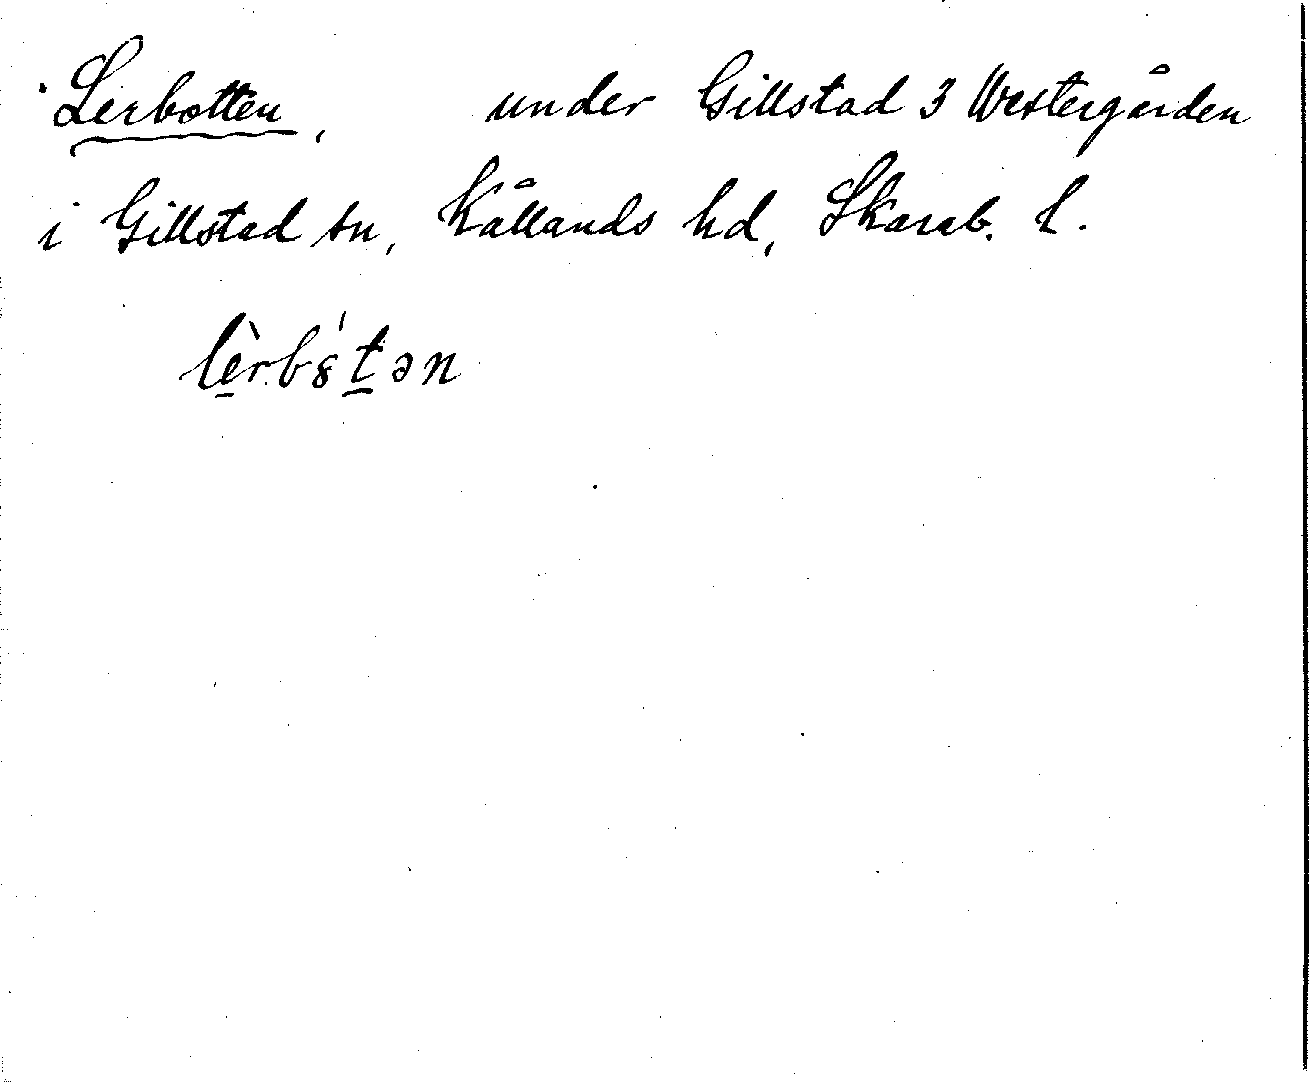 Lerbotten, under Gillstad 3 Westergården
i Gillstad sn, Kållands hd, Skarab. l.
lèrbȣ́tən